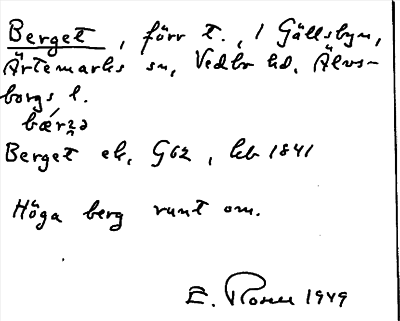 Berget, förr t., i Gällsbyn,
Ärtemarks sn, Vedbo hd, Älvs-
borgs l.
Berget ek, G62, hb 1841
Höga berg runt om.
E. Rosell 1949